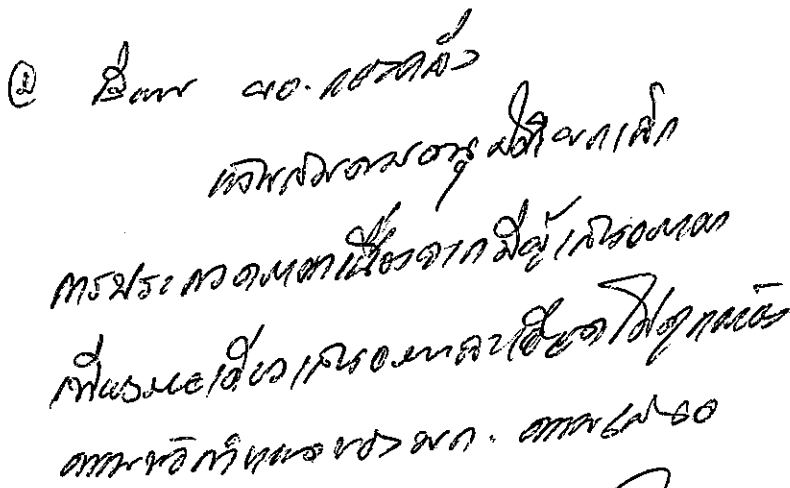 ② เรียน ผอ.กองคลัง
เห็นสมควรอนุมัติยกเลิก
การประกวดราคาเนื่องจากมีผู้เสนอราคา
เพียงรายเดียวเสนอรายละเอียดไม่ถูกต้อง
ตามข้อกำหนดของ ตามเสนอ